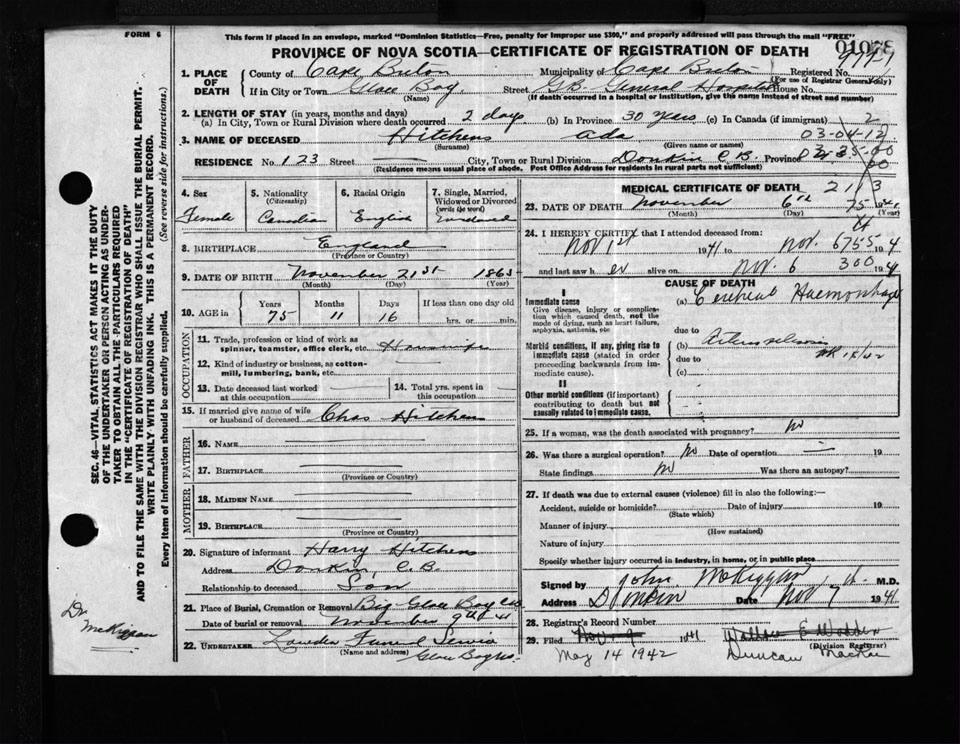 FORM 6
This form if placed in an envelope, marked "Dominion Statistics—Free, penalty for improper use $300," and properly addressed will pass through the mail "FREE"
PROVINCE OF NOVA SCOTIA—CERTIFICATE OF REGISTRATION OF DEATH
1. PLACE OF DEATH County of Cape Breton Municipality of Cape Breton Registered No.
(For use of Registrar General only)
If in City or Town Glace Bay Street General Hospital House No.
(Name) (If death occurred in a hospital or institution, give the name instead of street and number)
2. LENGTH OF STAY (in years, months and days)
(a) In City, Town or Rural Division where death occurred 2 days (b) In Province 30 years (c) In Canada (if immigrant) 2
3. NAME OF DECEASED Hitchens Ada 03-04-12
(Surname) (Given name or names)
RESIDENCE No. 123 Street — City, Town or Rural Division Donkin C.B. Province
(Residence means usual place of abode. Post Office Address for residents in rural parts not sufficient)
4. Sex 5. Nationality (Citizenship) 6. Racial Origin 7. Single, Married, Widowed or Divorced (write the word)
Female Canadian English
8. BIRTHPLACE England
(Province or Country)
9. DATE OF BIRTH November 21st 1863
(Month) (Day) (Year)
10. AGE in Years Months Days If less than one day old
75 11 16 hrs. or min.
OCCUPATION
11. Trade, profession or kind of work as spinner, teamster, office clerk, etc. Housewife
12. Kind of industry or business, as cotton-mill, lumbering, bank, etc.
13. Date deceased last worked at this occupation 14. Total yrs. spent in this occupation
15. If married give name of wife or husband of deceased Chas Hitchens
FATHER
16. NAME
17. BIRTHPLACE
(Province or Country)
MOTHER
18. MAIDEN NAME
19. BIRTHPLACE
(Province or Country)
20. Signature of informant Harry Hitchens
Address Donkin, C.B.
Relationship to deceased Son
21. Place of Burial, Cremation or Removal Big Glace Bay C.B.
Date of burial or removal November 9th 41
22. UNDERTAKER Funeral Service
(Name and address) Glace Bay NS.
MEDICAL CERTIFICATE OF DEATH 2113
23. DATE OF DEATH November 6th 1941
(Month) (Day)
24. I HEREBY CERTIFY that I attended deceased from:
Nov 1st 1941 to Nov. 6 194
and last saw h er alive on Nov. 6 194
CAUSE OF DEATH
I
Immediate cause (a) Cerebral Haemorrhage
Give disease, injury or complication which caused death, not the mode of dying, such as heart failure, asphyxia, asthenia, etc
due to
Morbid conditions, if any, giving rise to immediate cause (stated in order proceeding backwards from immediate cause). (b)
due to
(c)
II
Other morbid conditions (if important) contributing to death but not causally related to immediate cause.
25. If a woman, was the death associated with pregnancy? No
26. Was there a surgical operation? No Date of operation — 19
State findings No Was there an autopsy?
27. If death was due to external causes (violence) fill in also the following:—
Accident, suicide or homicide? Date of injury 19
(State which)
Manner of injury
(How sustained)
Nature of injury
Specify whether injury occurred in industry, in home, or in public place
Signed by John McKiggan M.D.
Address Donkin Date Nov 7 1941
28. Registrar's Record Number
29. Filed Nov. 9 1941
May 14 1942 Duncan MacRae
(Division Registrar)
SEC. 46—VITAL STATISTICS ACT MAKES IT THE DUTY OF THE UNDERTAKER OR PERSON ACTING AS UNDERTAKER TO OBTAIN ALL THE PARTICULARS REQUIRED IN THE "CERTIFICATE OF REGISTRATION OF DEATH" AND TO FILE THE SAME WITH THE DIVISION REGISTRAR WHO SHALL ISSUE THE BURIAL PERMIT.
WRITE PLAINLY WITH UNFADING INK. THIS IS A PERMANENT RECORD.
Every item of information should be carefully supplied. (See reverse side for instructions.)
Dr McKiggan